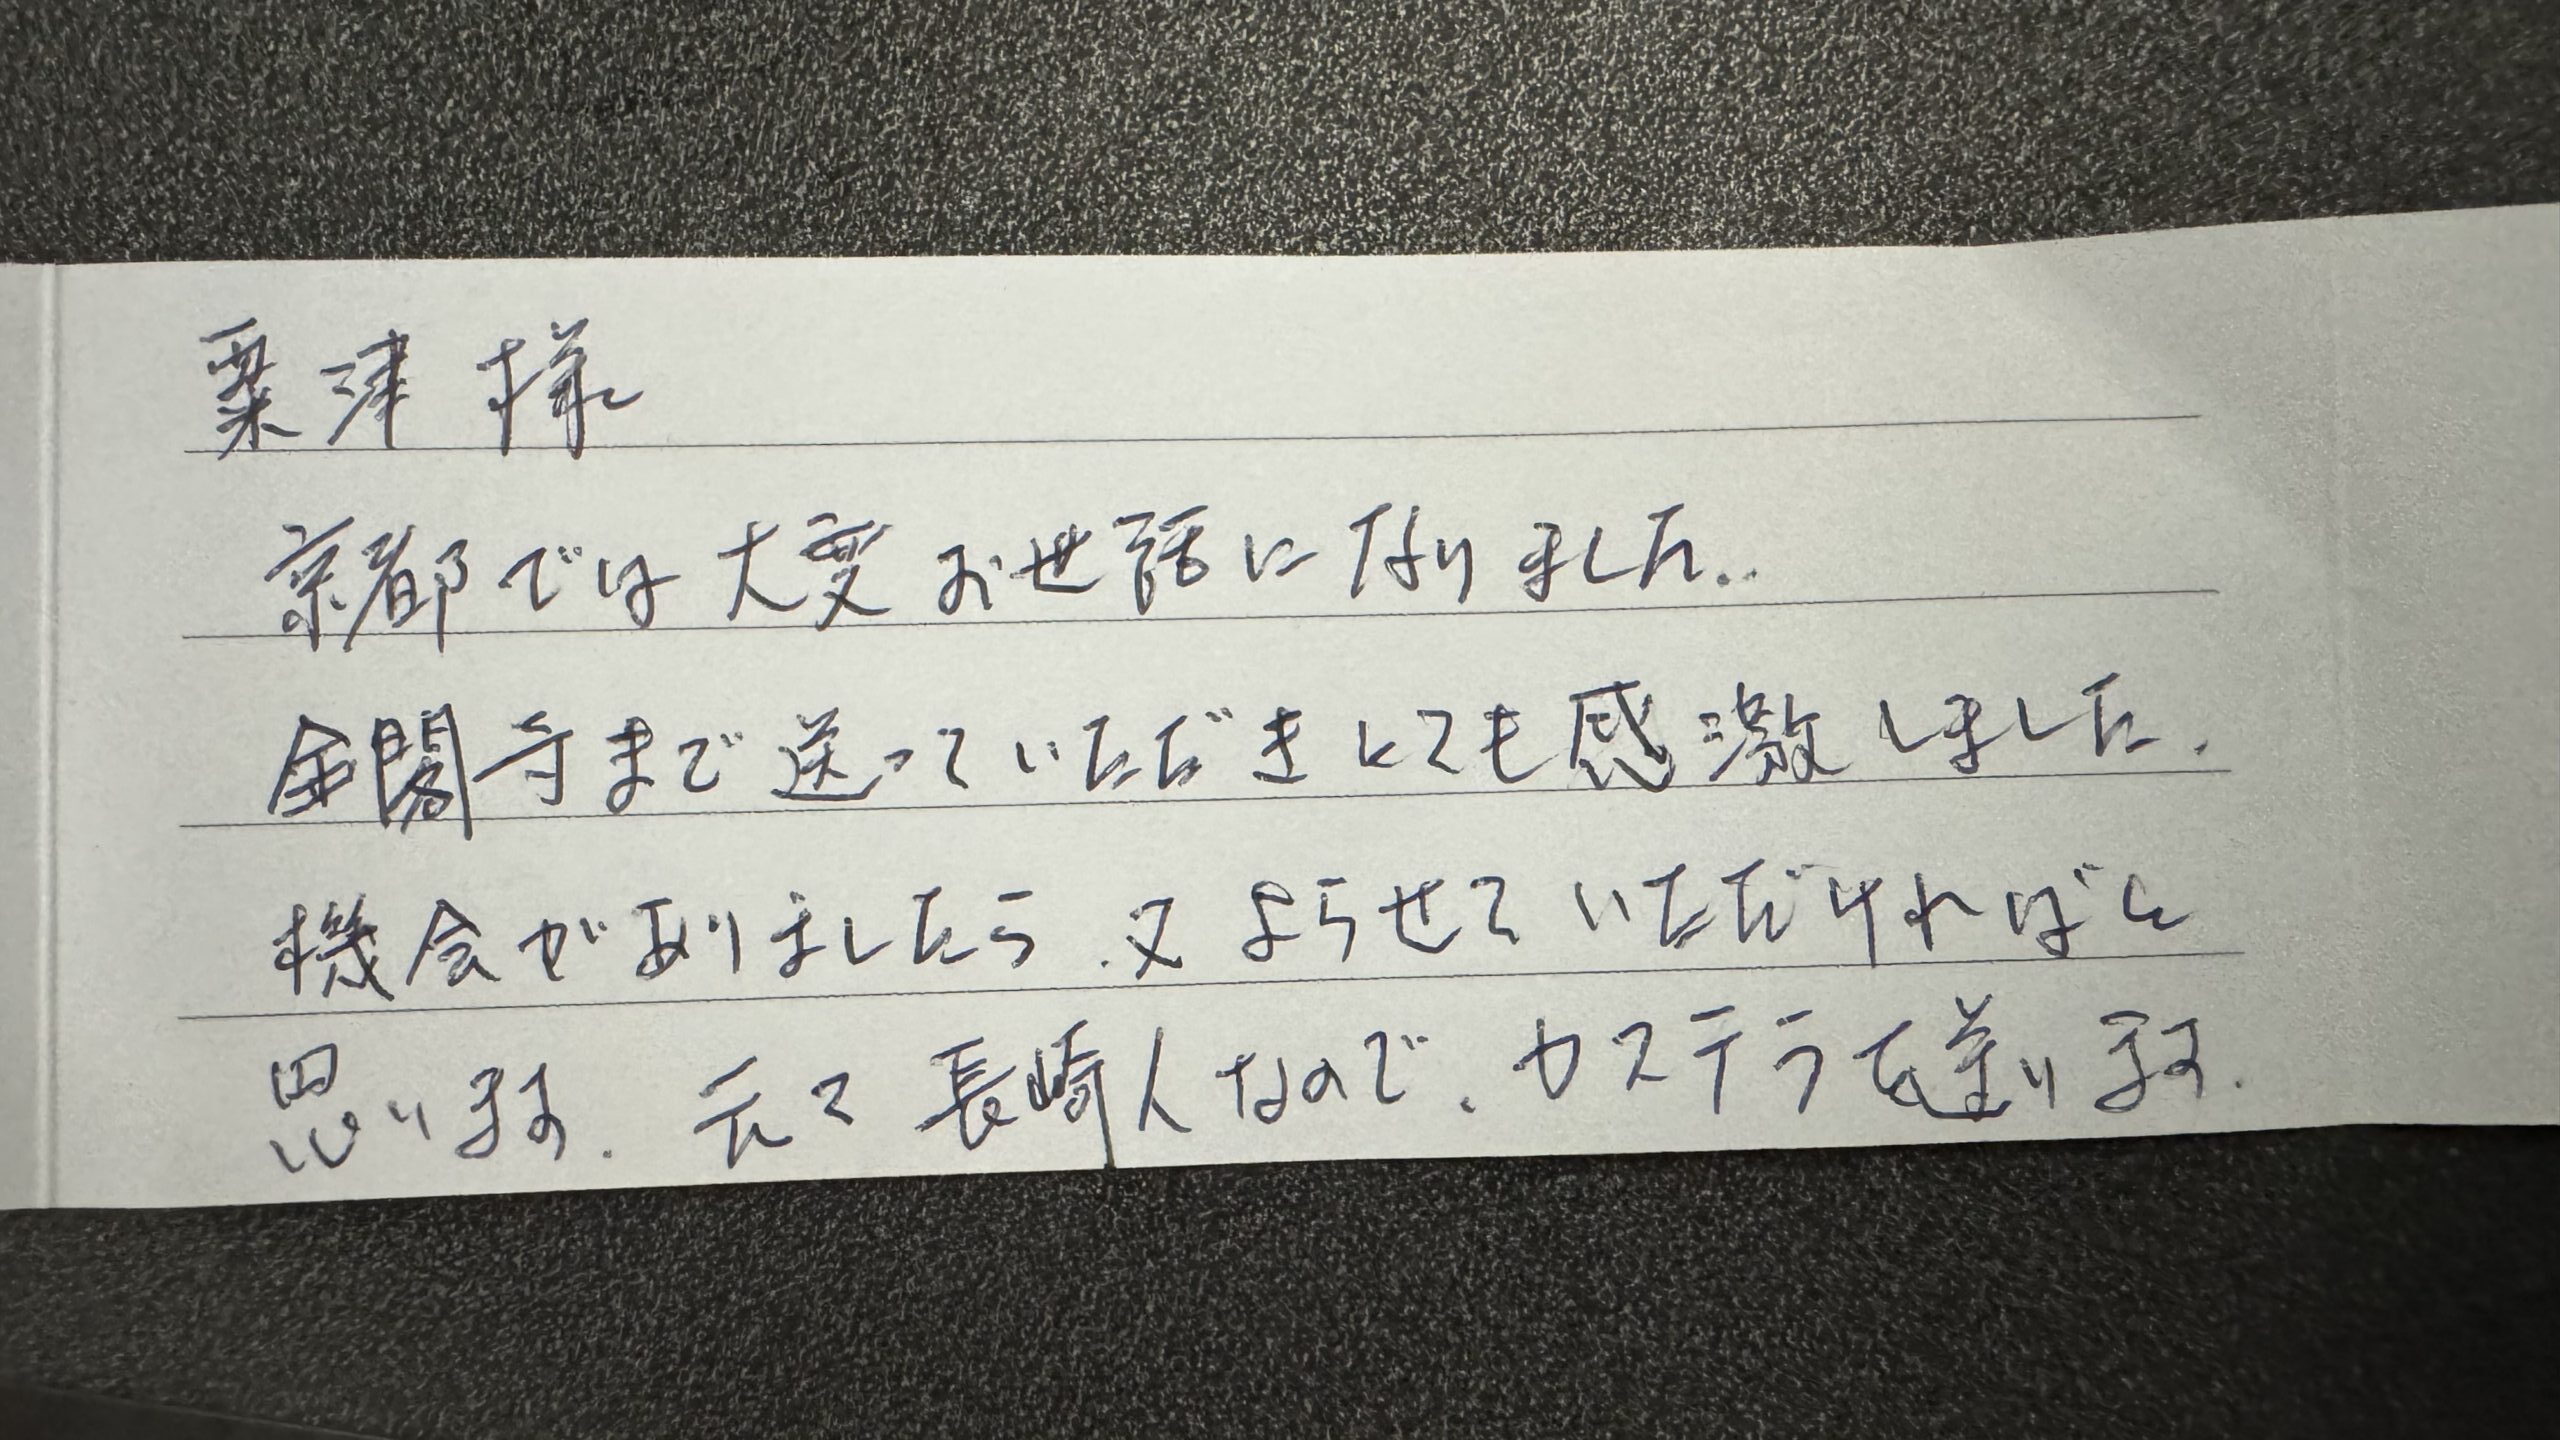 粟津 様
京都では大変お世話になりました。
金閣寺まで送っていただきとても感激しました。
機会がありましたら、又よらせていただければと
思います。元々長崎人なので、カステラを送ります。